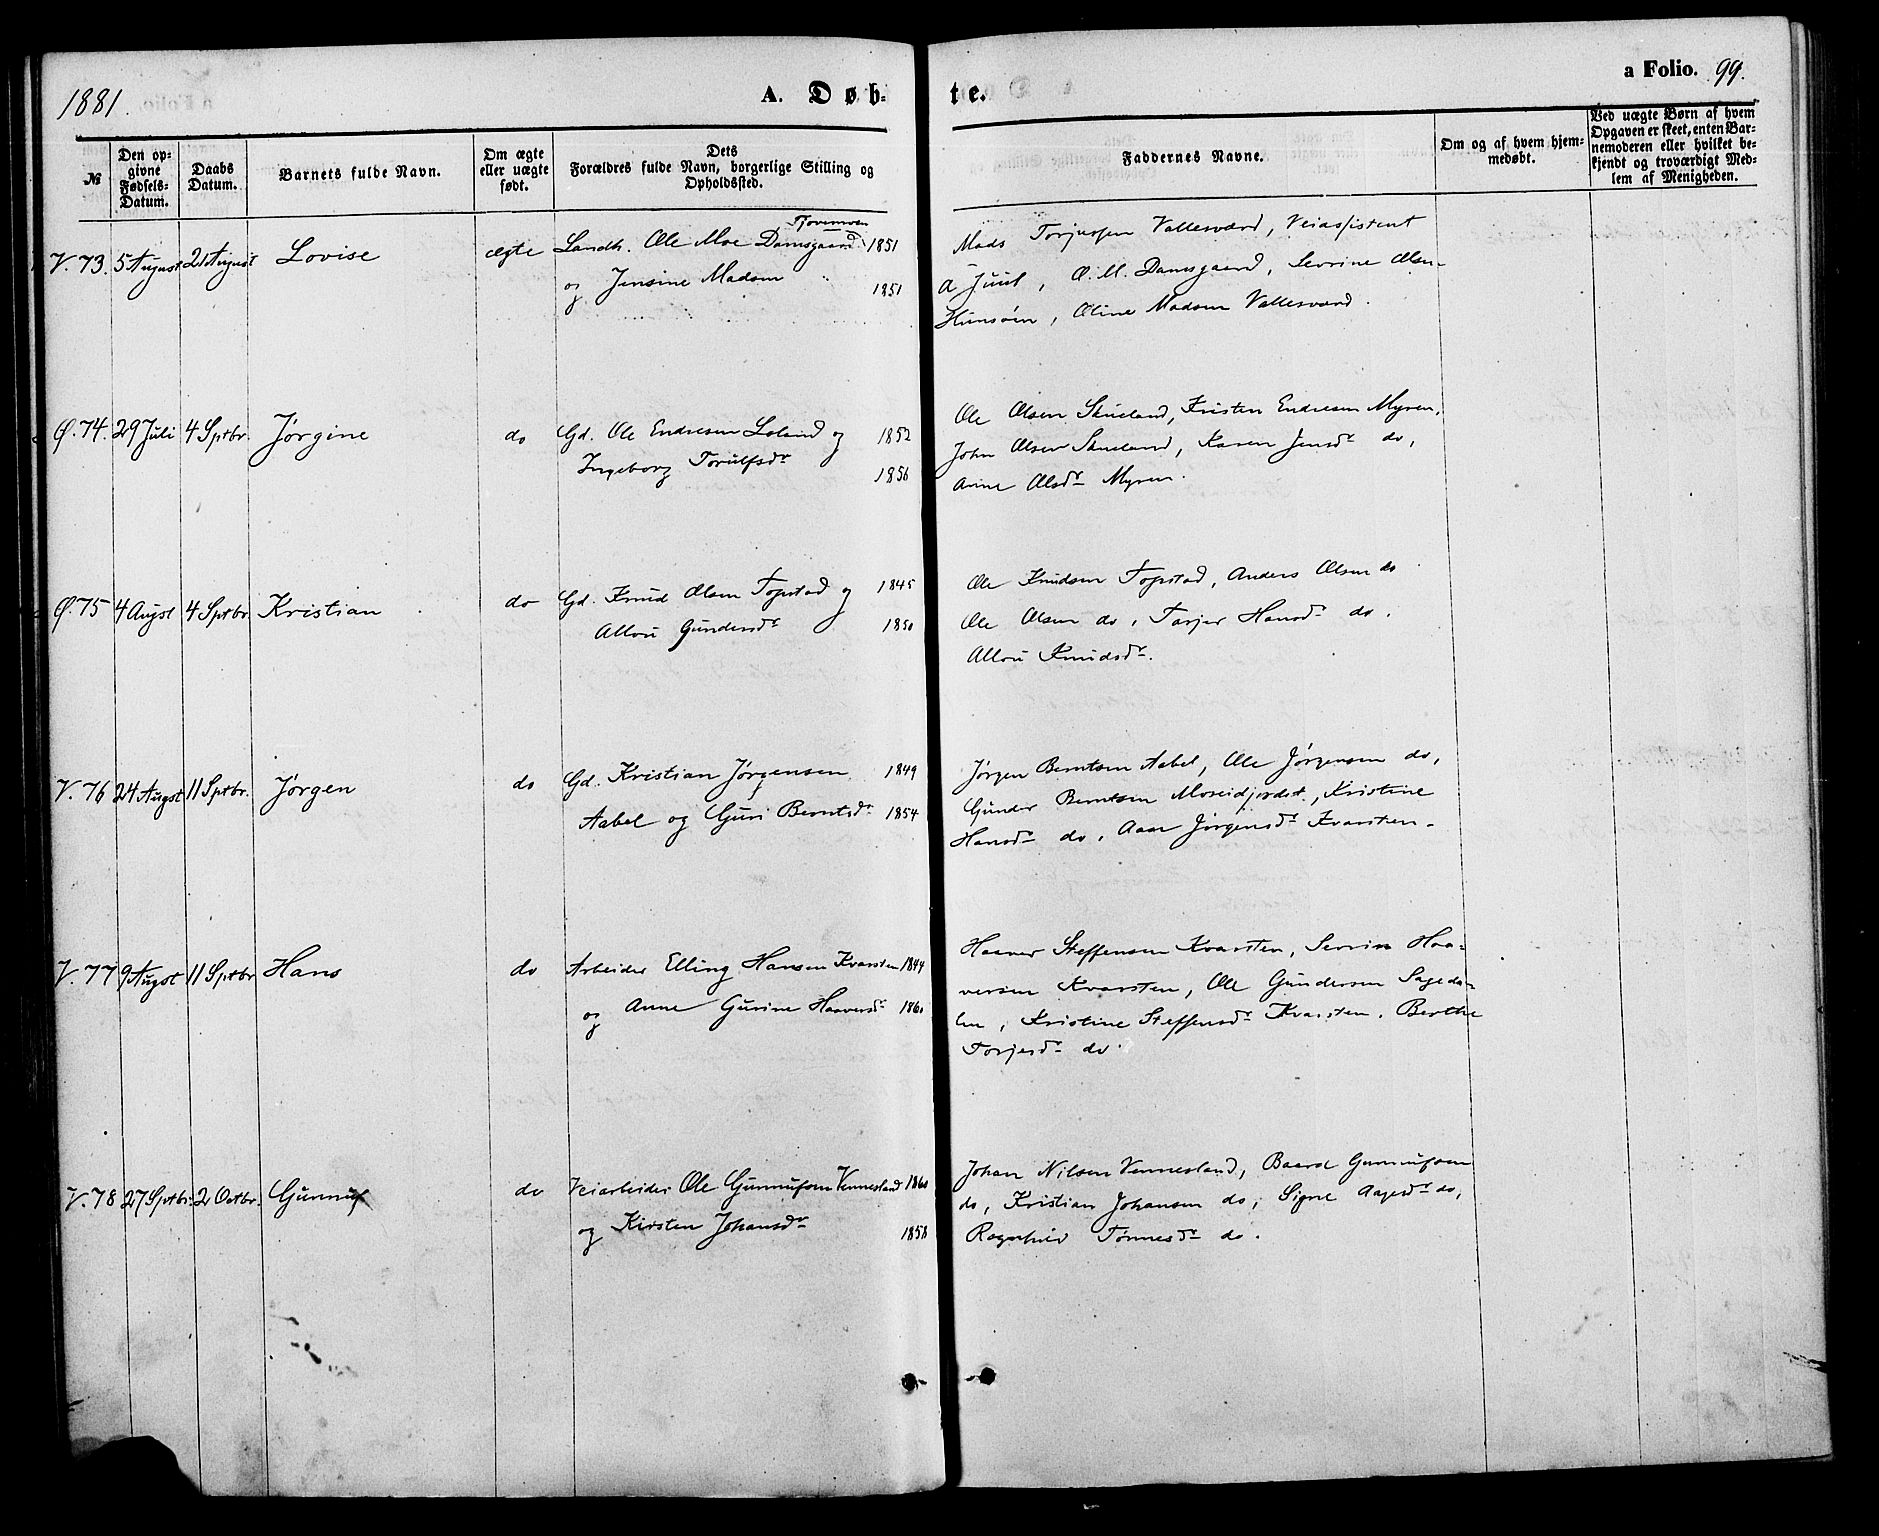 1881.
A. Døb-
te.
a Folio. 99.
№
Den op-
givne
Fødsels-
Datum.
Daabs
Datum.
Barnets fulde Navn.
Om ægte
eller uægte
født.
Dets
Forældres fulde Navn, borgerlige Stilling og
Opholdssted.
Faddernes Navne.
Om og af hvem hjem-
medøbt.
Ved uægte Børn af hvem
Opgaven er skeet, enten Bar-
nemoderen eller hvilket be-
kjendt og troværdigt Med-
lem af Menigheden.
V. 73. 5 August 21 August Lovise ægte Landh. Ole Moe Damsgaard 1851
og Jensine Madsen 1851
Mads Torjussen Vallesværd, Veiassistent
A Juul, O. M. Damsgaard, Sevrine Olsen
Hunsøen, Oline Madsen Vallesværd.
Ø. 74. 29 Juli 4 Sptbr. Jørgine do Gd. Ole Endresen Loland og 1852
Ingeborg Torulfsdr 1856
Ole Olsen Skueland, Kristen Endresen Myren,
John Olsen Skueland, Karen Jensdr do,
Anne Olsdr Myren.
Ø. 75 4 Augst 4 Sptbr. Kristian do Gd. Knud Olsen Topstad og 1845
Allou Gundersdr 1850
Ole Knudsen Topstad, Anders Olsen do
Ole Olsen do, Torjer Hansdr do.
Allou Knudsdr.
V. 76 24 Augst 11 Sptbr. Jørgen do Gd. Kristian Jørgensen 1849
Aabel og Guri Berntsdr 1854
Jørgen Berntsen Aabel, Ole Jørgensen do,
Gunder Berntsen Moseidjordet, Kristine
Hansdr do, Aase Jørgensdr Kvarsten.
V. 77 9 Augst 11 Sptbr Hans do Arbeider Elling Hansen Kvarsten 1844
og Anne Gurine Haaversdr 1860
Haaver Steffensen Kvarsten, Sevrin Haa-
versen Kvarsten, Ole Gundersen Sageda-
len, Kristine Steffensdr Kvarsten. Berthe
Torjersdr do.
V. 78 27 Sptbr. 2 Octbr. Gunnuf do Veiarbeider Ole Gunnufsen Vennesland 1860
og Kirsten Johansdr 1858
Johan Nilsen Vennesland, Baard Gunnufsen
do, Kristian Johansen do, Signe Aagesdr do,
Ragnhild Tønnesdr do.